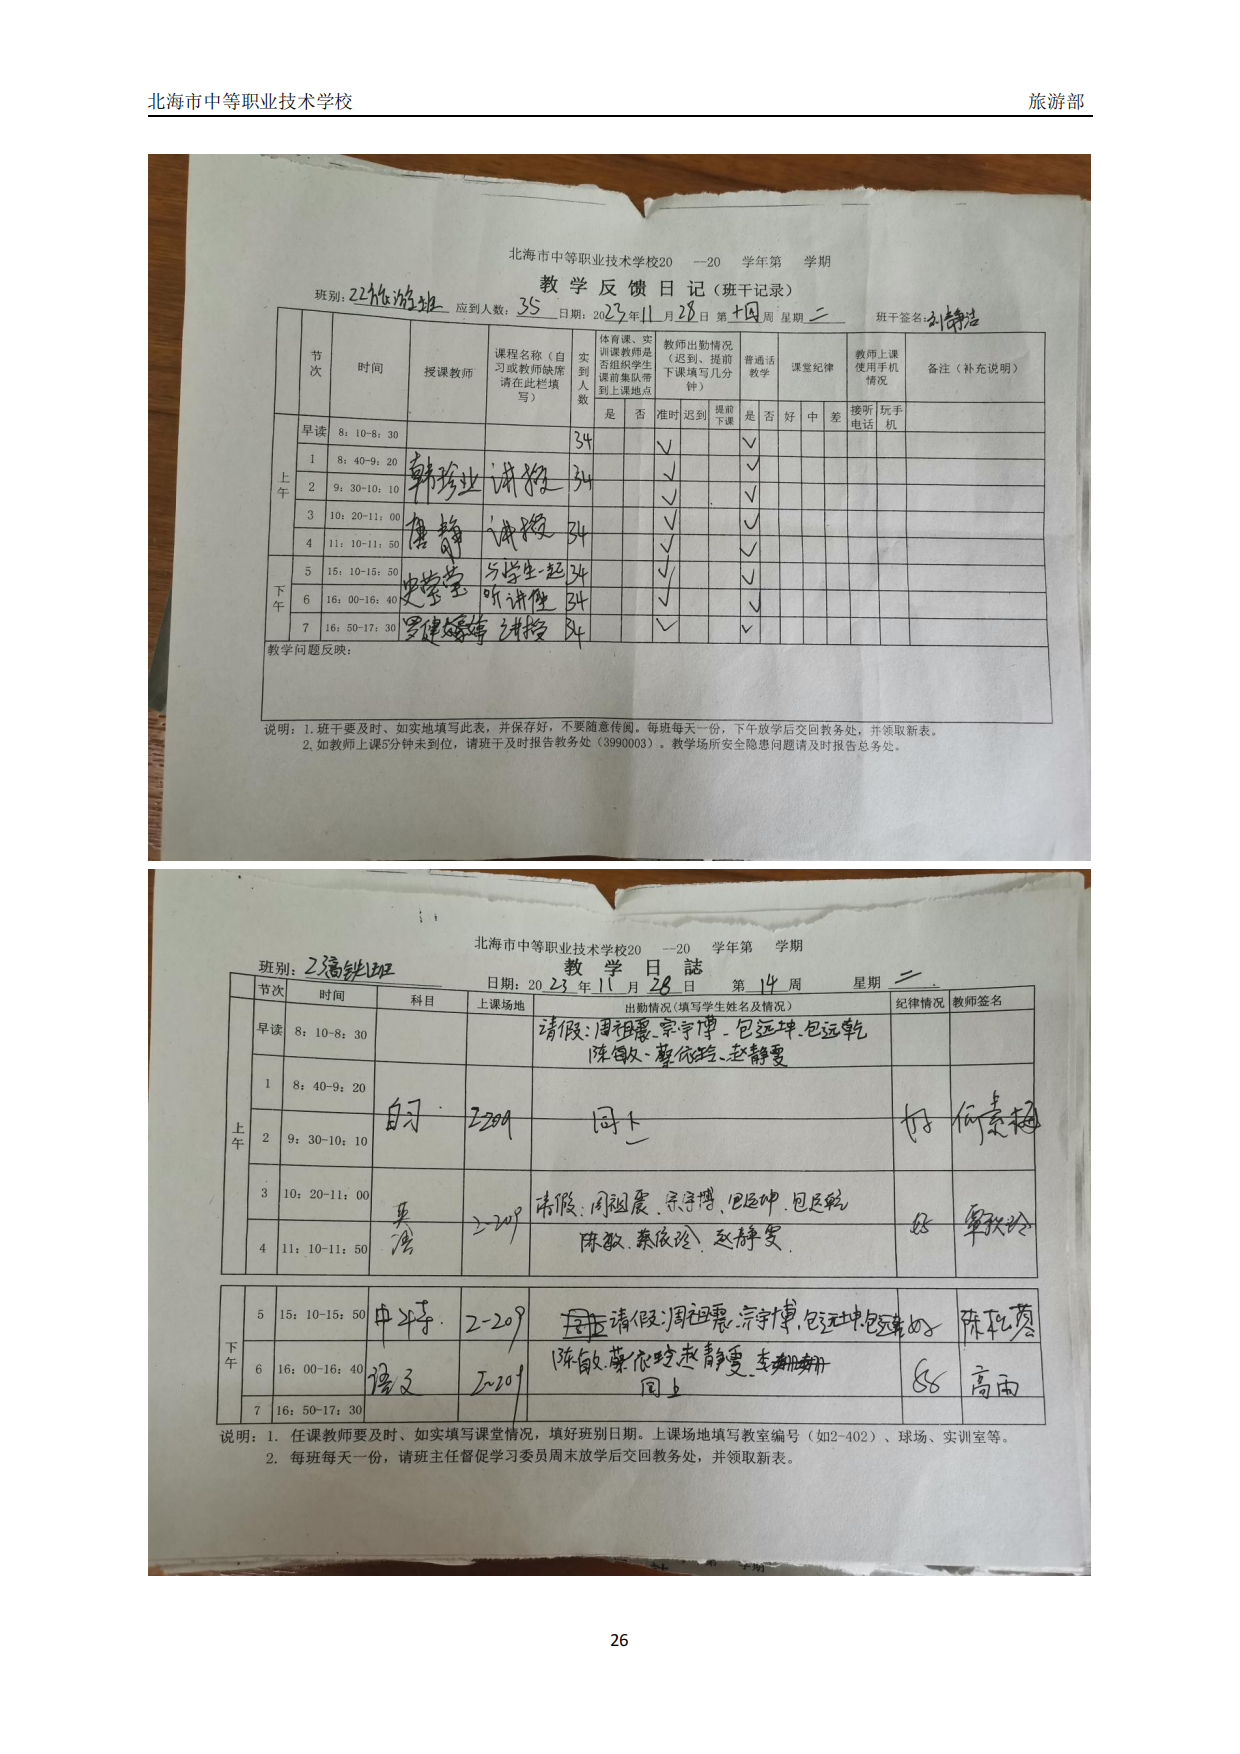 北海市中等职业技术学校 旅游部
北海市中等职业技术学校20 —20 学年第 学期
教学反馈日记(班干记录)
班别:22旅游班 应到人数:35 日期:2023年11月28日 第十四周 星期二 班干签名:刘静洁
节次 时间 授课教师 课程名称(自习或教师缺席请在此栏填写) 实到人数 体育课、实训课教师是否组织学生课前集队带到上课地点 教师出勤情况(迟到、提前下课填写几分钟) 普通话教学 课堂纪律 教师上课使用手机情况 备注(补充说明)
是 否 准时 迟到 提前下课 是 否 好 中 差 接听电话 玩手机
上午
早读 8:10-8:30 34 ✓ ✓
1 8:40-9:20 韩珍业 讲授 34 ✓ ✓
2 9:30-10:10 ✓ ✓
3 10:20-11:00 唐静 讲授 34 ✓ ✓
4 11:10-11:50 ✓ ✓
下午
5 15:10-15:50 史莹莹 与学生一起 34 ✓ ✓
6 16:00-16:40 听讲座 34 ✓ ✓
7 16:50-17:30 罗健婷 讲授 34 ✓ ✓
教学问题反映:
说明:1.班干要及时、如实地填写此表,并保存好,不要随意传阅。每班每天一份,下午放学后交回教务处,并领取新表。
2.如教师上课5分钟未到位,请班干及时报告教务处(3990003)。教学场所安全隐患问题请及时报告总务处。
北海市中等职业技术学校20 —20 学年第 学期
教 学 日 誌
班别:23高铁1班 日期:2023年11月28日 第14周 星期二
节次 时间 科目 上课场地 出勤情况(填写学生姓名及情况) 纪律情况 教师签名
早读 8:10-8:30 请假:周祖震、宗宇博、包远坤、包远乾
陈敏、蔡依玲、赵静雯
上午
1 8:40-9:20 自习 2-209 同上 好 何素梅
2 9:30-10:10
3 10:20-11:00 英语 2-209 请假:周祖震、宗宇博、包远坤、包远乾 好 覃秋玲
4 11:10-11:50 陈敏、蔡依玲、赵静雯
下午
5 15:10-15:50 2-209 请假:周祖震、宗宇博、包远坤、包远乾 好
陈敏、蔡依玲、赵静雯、
6 16:00-16:40 语文 2-209 同上 好 高雨
7 16:50-17:30
说明:1. 任课教师要及时、如实填写课堂情况,填好班别日期。上课场地填写教室编号(如2-402)、球场、实训室等。
2. 每班每天一份,请班主任督促学习委员周末放学后交回教务处,并领取新表。
26